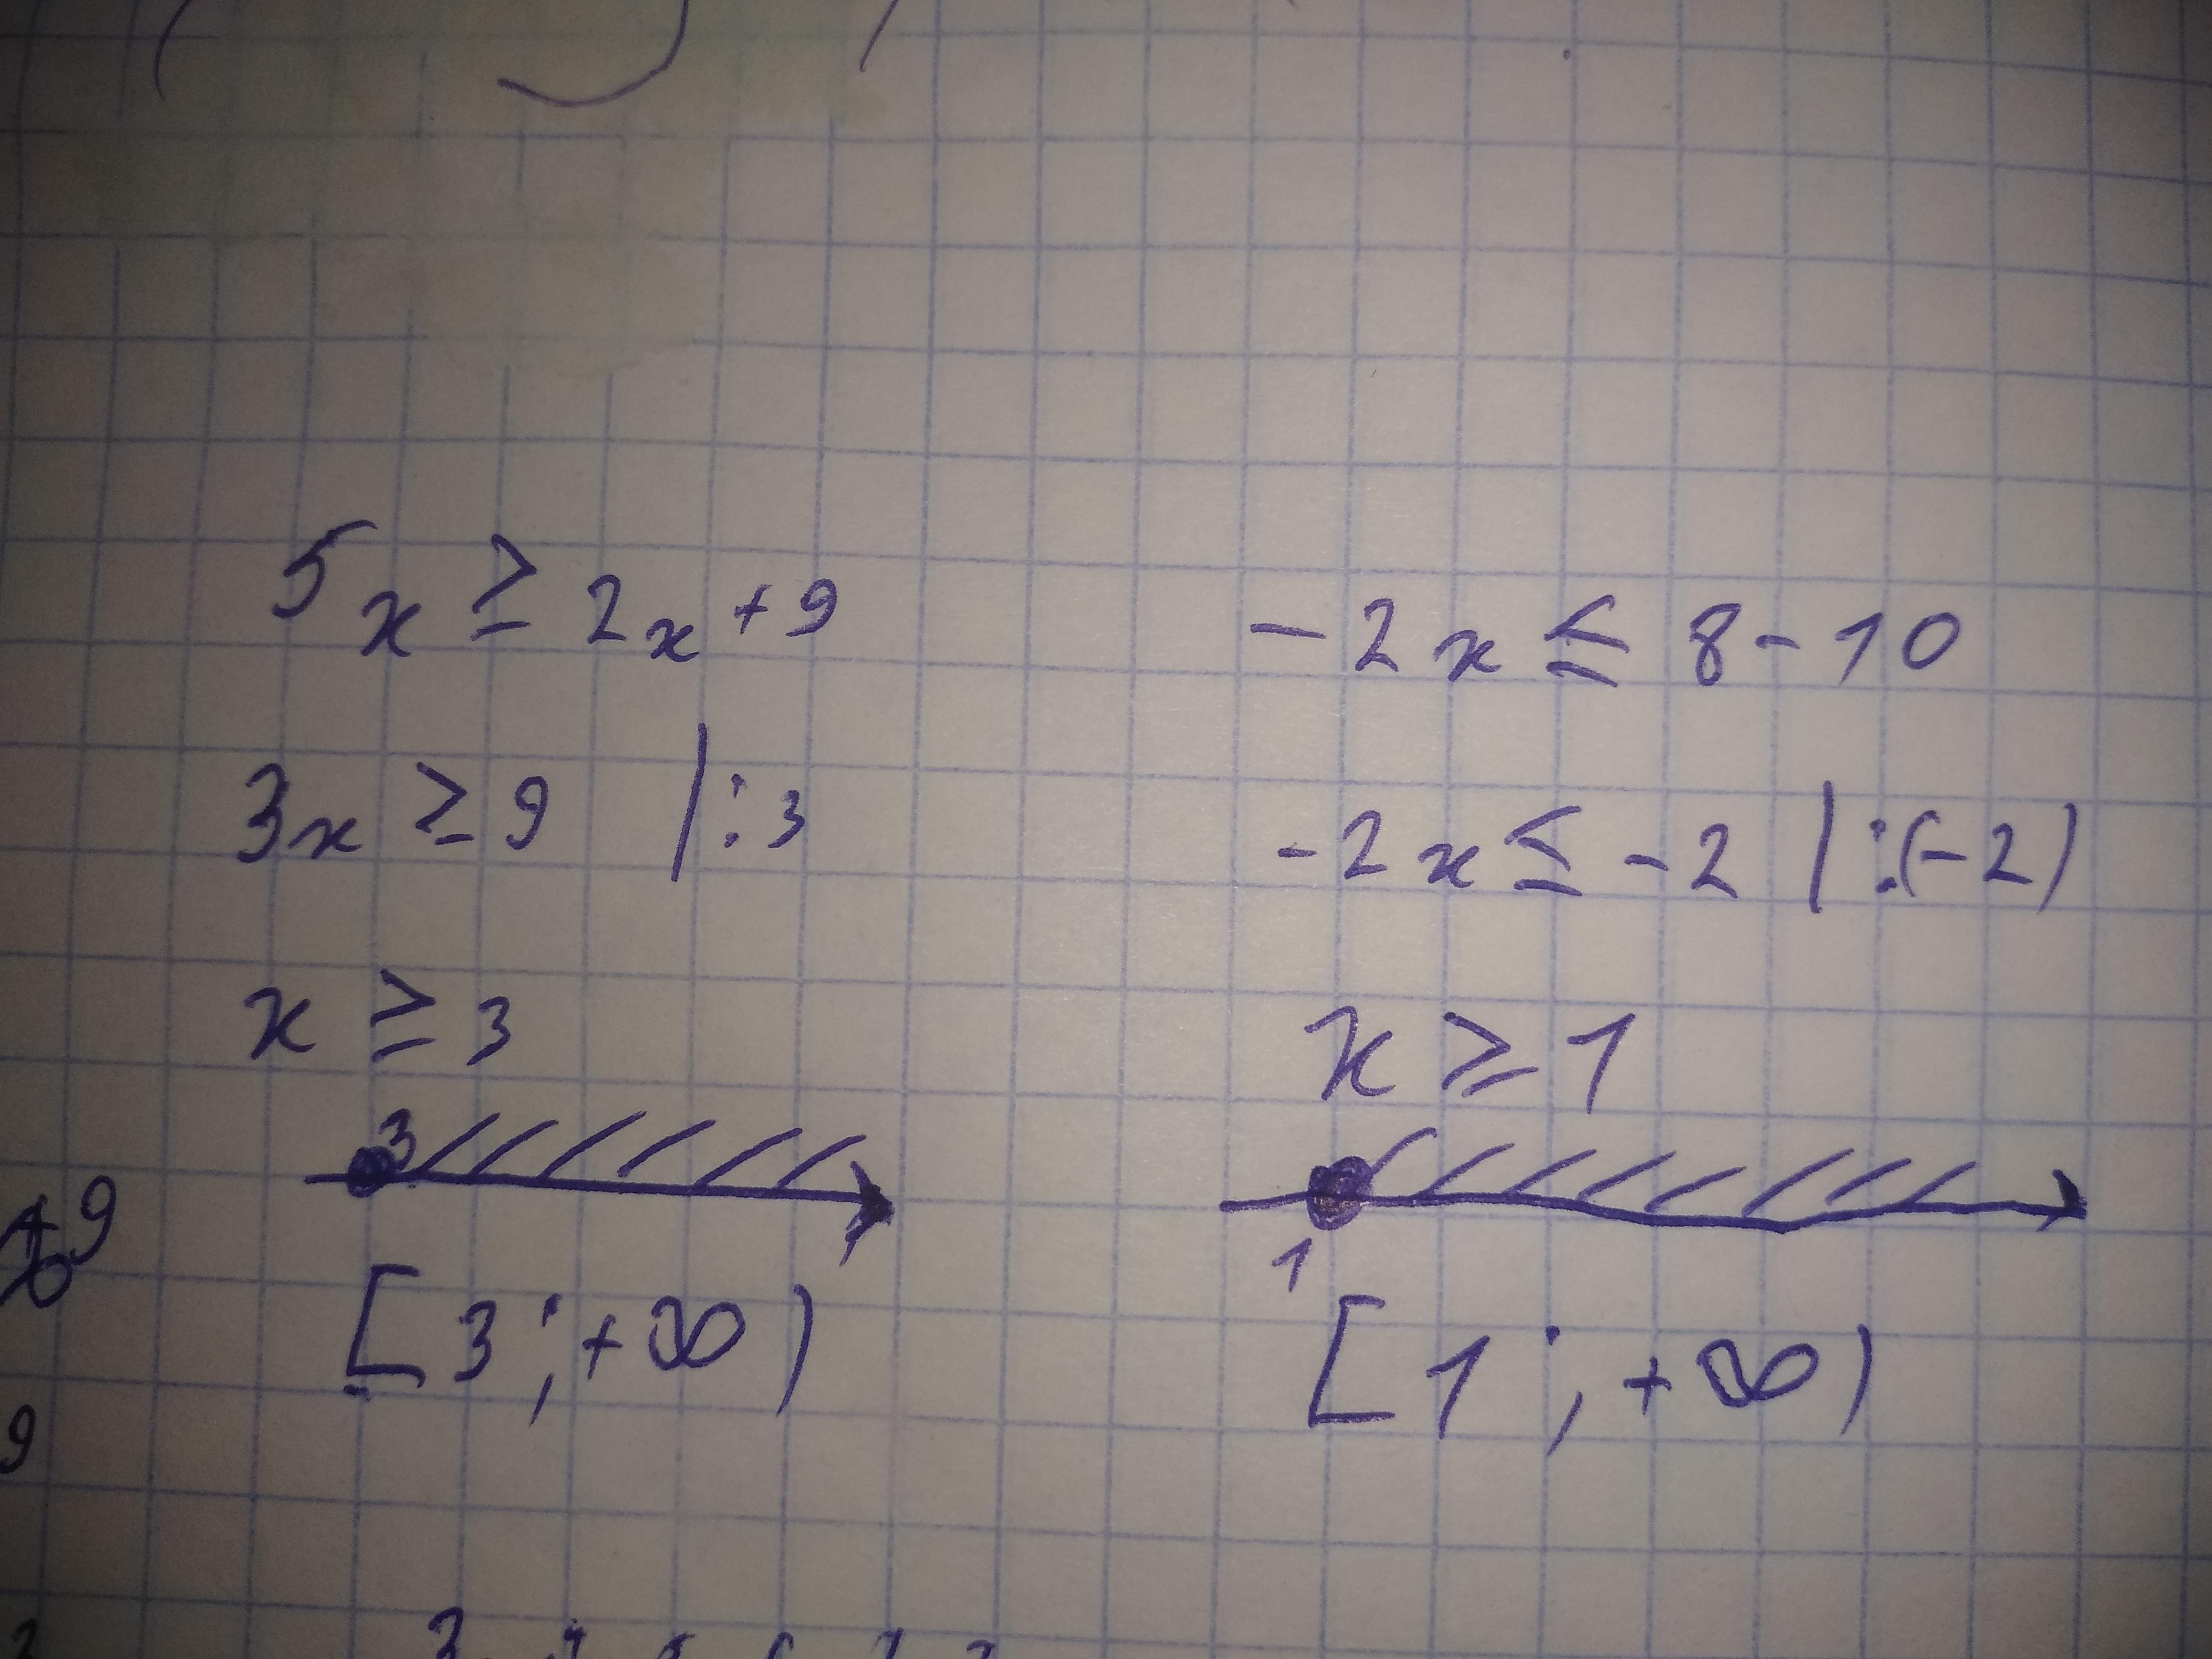 5x ≥ 2x + 9
3x ≥ 9 | : 3
x ≥ 3
3
[3 ; +∞)
-2x ≤ 8 - 10
-2x ≤ -2 | : (-2)
x ≥ 1
1
[1 ; +∞)
9
9